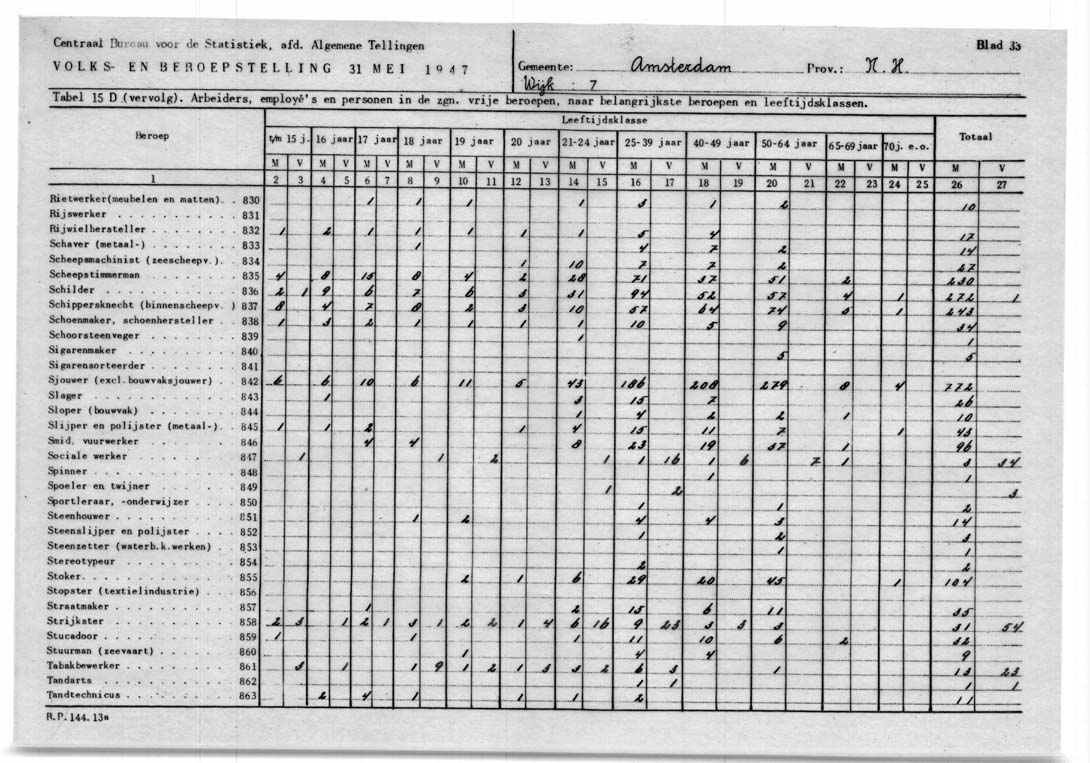 Centraal Bureau voor de Statistiek, afd. Algemene Tellingen
VOLKS- EN BEROEPSTELLING 31 MEI 1947
Gemeente: Amsterdam Prov.: N. H. Blad 33
Wijk : 7
Tabel 15 D (vervolg). Arbeiders, employé's en personen in de zgn. vrije beroepen, naar belangrijkste beroepen en leeftijdsklassen.
Beroep Leeftijdsklasse Totaal
t/m 15 j. 16 jaar 17 jaar 18 jaar 19 jaar 20 jaar 21-24 jaar 25-39 jaar 40-49 jaar 50-64 jaar 65-69 jaar 70j. e.o.
M V M V M V M V M V M V M V M V M V M V M V M V M V
1 2 3 4 5 6 7 8 9 10 11 12 13 14 15 16 17 18 19 20 21 22 23 24 25 26 27
Rietwerker(meubelen en matten). . 830 1 1 1 1 3 1 2 10
Rijswerker . . . . . . . . . . 831
Rijwielhersteller . . . . . . . . 832 1 2 1 1 1 1 1 5 4 17
Schaver (metaal-) . . . . . . . . 833 1 4 7 2 14
Scheepsmachinist (zeescheepv.). . 834 1 10 7 7 2 27
Scheepstimmerman . . . . . . . 835 4 8 15 8 4 2 28 71 37 51 2 230
Schilder . . . . . . . . . . . 836 2 1 9 6 7 6 3 31 94 52 57 4 1 272 1
Schippersknecht (binnenscheepv. ) 837 8 4 7 8 2 3 10 57 64 74 5 1 243
Schoenmaker, schoenhersteller . . 838 1 3 2 1 1 1 1 10 5 9 34
Schoorsteenveger . . . . . . . . 839 1 1
Sigarenmaker . . . . . . . . . . 840 5 5
Sigarensorteerder . . . . . . . 841
Sjouwer (excl.bouwvaksjouwer) . . 842 6 6 10 6 11 5 43 186 208 279 8 4 772
Slager . . . . . . . . . . . . 843 1 3 15 7 26
Sloper (bouwvak) . . . . . . . 844 1 4 2 2 1 10
Slijper en polijster (metaal-). . 845 1 1 2 1 4 15 11 7 1 43
Smid, vuurwerker . . . . . . . 846 4 4 8 23 19 37 1 96
Sociale werker . . . . . . . . 847 1 1 2 1 1 16 1 6 7 1 3 34
Spinner . . . . . . . . . . . . 848 1 1
Spoeler en twijner . . . . . . . 849 1 2 3
Sportleraar, -onderwijzer . . . . 850 1 1 2
Steenhouwer . . . . . . . . . . 851 1 2 4 4 3 14
Steenslijper en polijster . . . . 852 1 2 3
Steenzetter (waterb.k.werken) . . 853 1 1
Stereotypeur . . . . . . . . . 854 2 2
Stoker. . . . . . . . . . . . . 855 2 1 6 29 20 45 1 104
Stopster (textielindustrie) . . . 856
Straatmaker . . . . . . . . . . 857 1 2 15 6 11 35
Strijkster . . . . . . . . . . . 858 2 3 1 2 1 3 1 2 2 1 4 6 16 9 23 3 3 3 31 54
Stucadoor . . . . . . . . . . . 859 1 1 1 11 10 6 2 32
Stuurman (zeevaart) . . . . . . 860 1 4 4 9
Tabakbewerker . . . . . . . . . 861 3 1 1 9 1 2 1 3 3 2 6 3 1 13 23
Tandarts . . . . . . . . . . . 862 1 1 1 1
Tandtechnicus . . . . . . . . . 863 2 4 1 1 1 2 11
R.P. 144. 13a